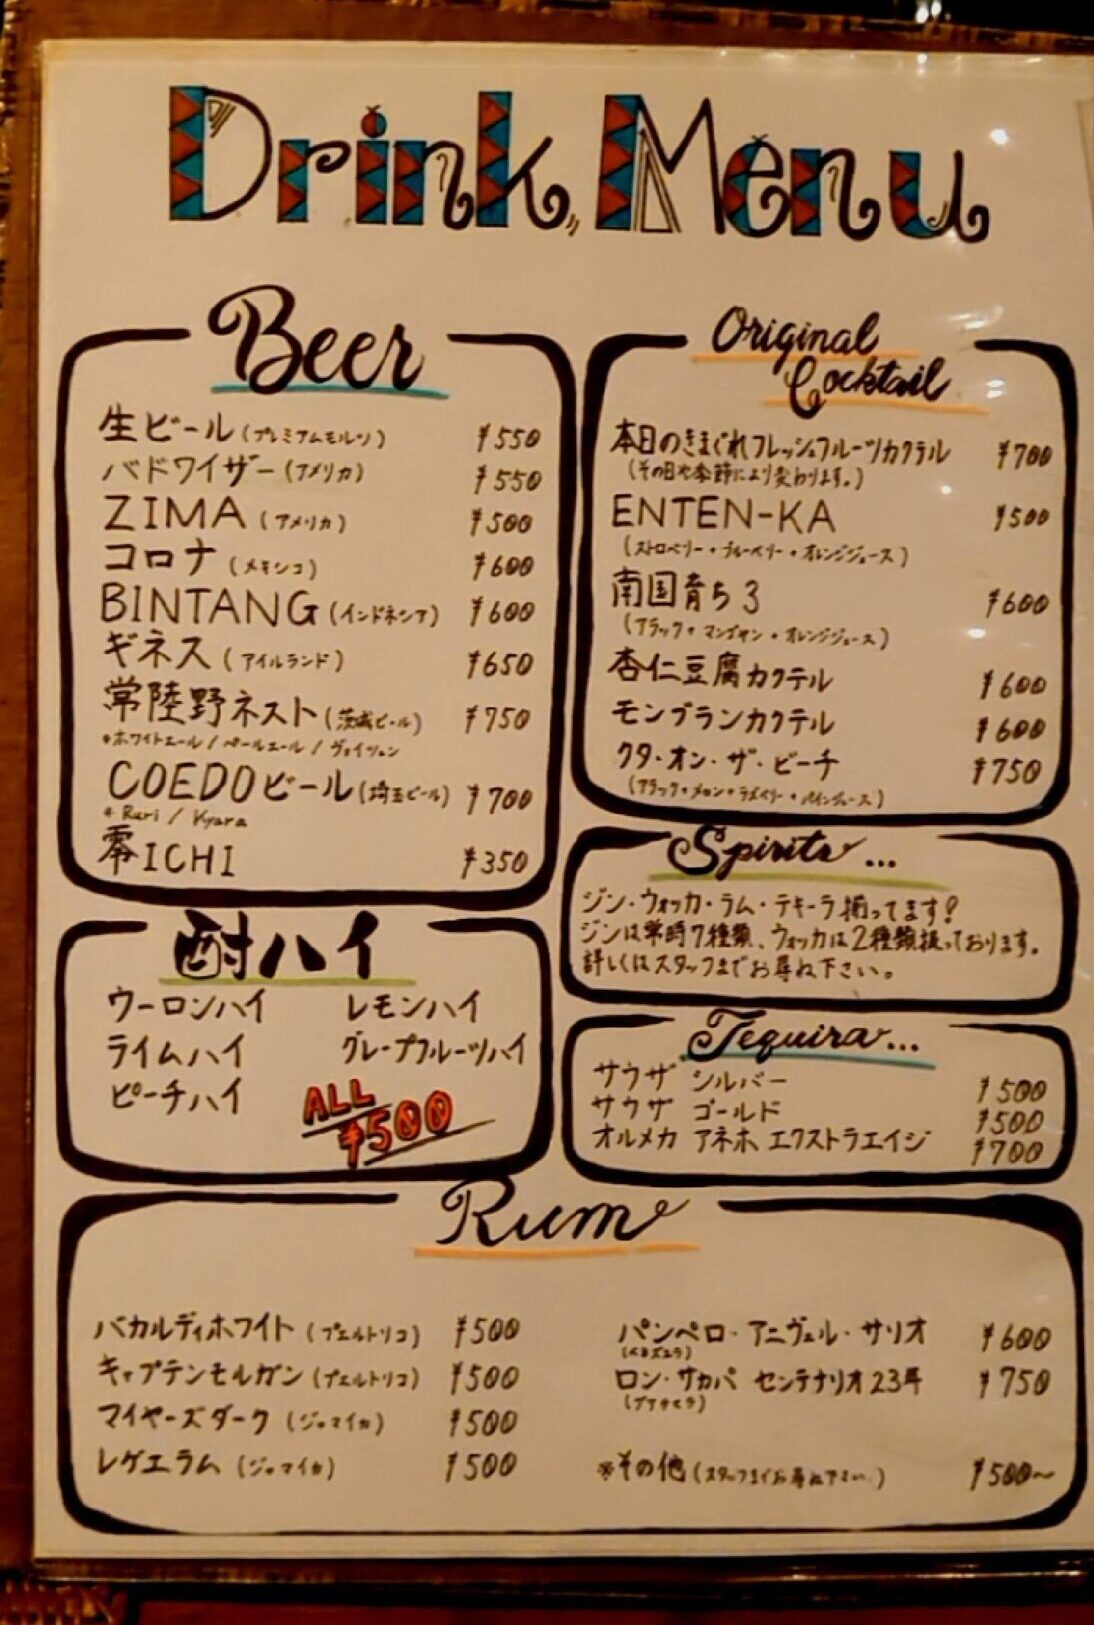 Drink Menu
Beer
生ビール(プレミアムモルツ) ¥550
バドワイザー(アメリカ) ¥550
ZIMA(アメリカ) ¥500
コロナ(メキシコ) ¥600
BINTANG(インドネシア) ¥600
ギネス(アイルランド) ¥650
常陸野ネスト(茨城ビール) ¥750
*ホワイトエール/ペールエール/ヴァイツェン
COEDOビール(埼玉ビール) ¥700
* Ruri / Kyara
零ICHI ¥350
酎ハイ
ウーロンハイ レモンハイ
ライムハイ グレープフルーツハイ
ピーチハイ
ALL
¥500
Original
Cocktail
本日のきまぐれフレッシュフルーツカクテル ¥700
(その日や季節により変わります。)
ENTEN-KA ¥500
(ストロベリー・ブルーベリー・オレンジジュース)
南国育ち3 ¥600
(アラック・マンゴヤン・オレンジジュース)
杏仁豆腐カクテル ¥600
モンブランカクテル ¥600
クタ・オン・ザ・ビーチ ¥750
(アラック・メロン・ラズベリー・パインジュース)
Spirits...
ジン・ウォッカ・ラム・テキーラ揃ってます!
ジンは常時7種類、ウォッカは2種類扱っております。
詳しくはスタッフまでお尋ね下さい。
Tequira...
サウザ シルバー ¥500
サウザ ゴールド ¥500
オルメカ アネホ エクストラエイジ ¥700
Rum
バカルディホワイト(プエルトリコ) ¥500
キャプテンモルガン(プエルトリコ) ¥500
マイヤーズダーク(ジャマイカ) ¥500
レゲエラム(ジャマイカ) ¥500
パンペロ・アニヴェル・サリオ ¥600
(ベネズエラ)
ロン・サカパ センテナリオ23年 ¥750
(グアテマラ)
※その他(スタッフまでお尋ね下さい。) ¥500〜